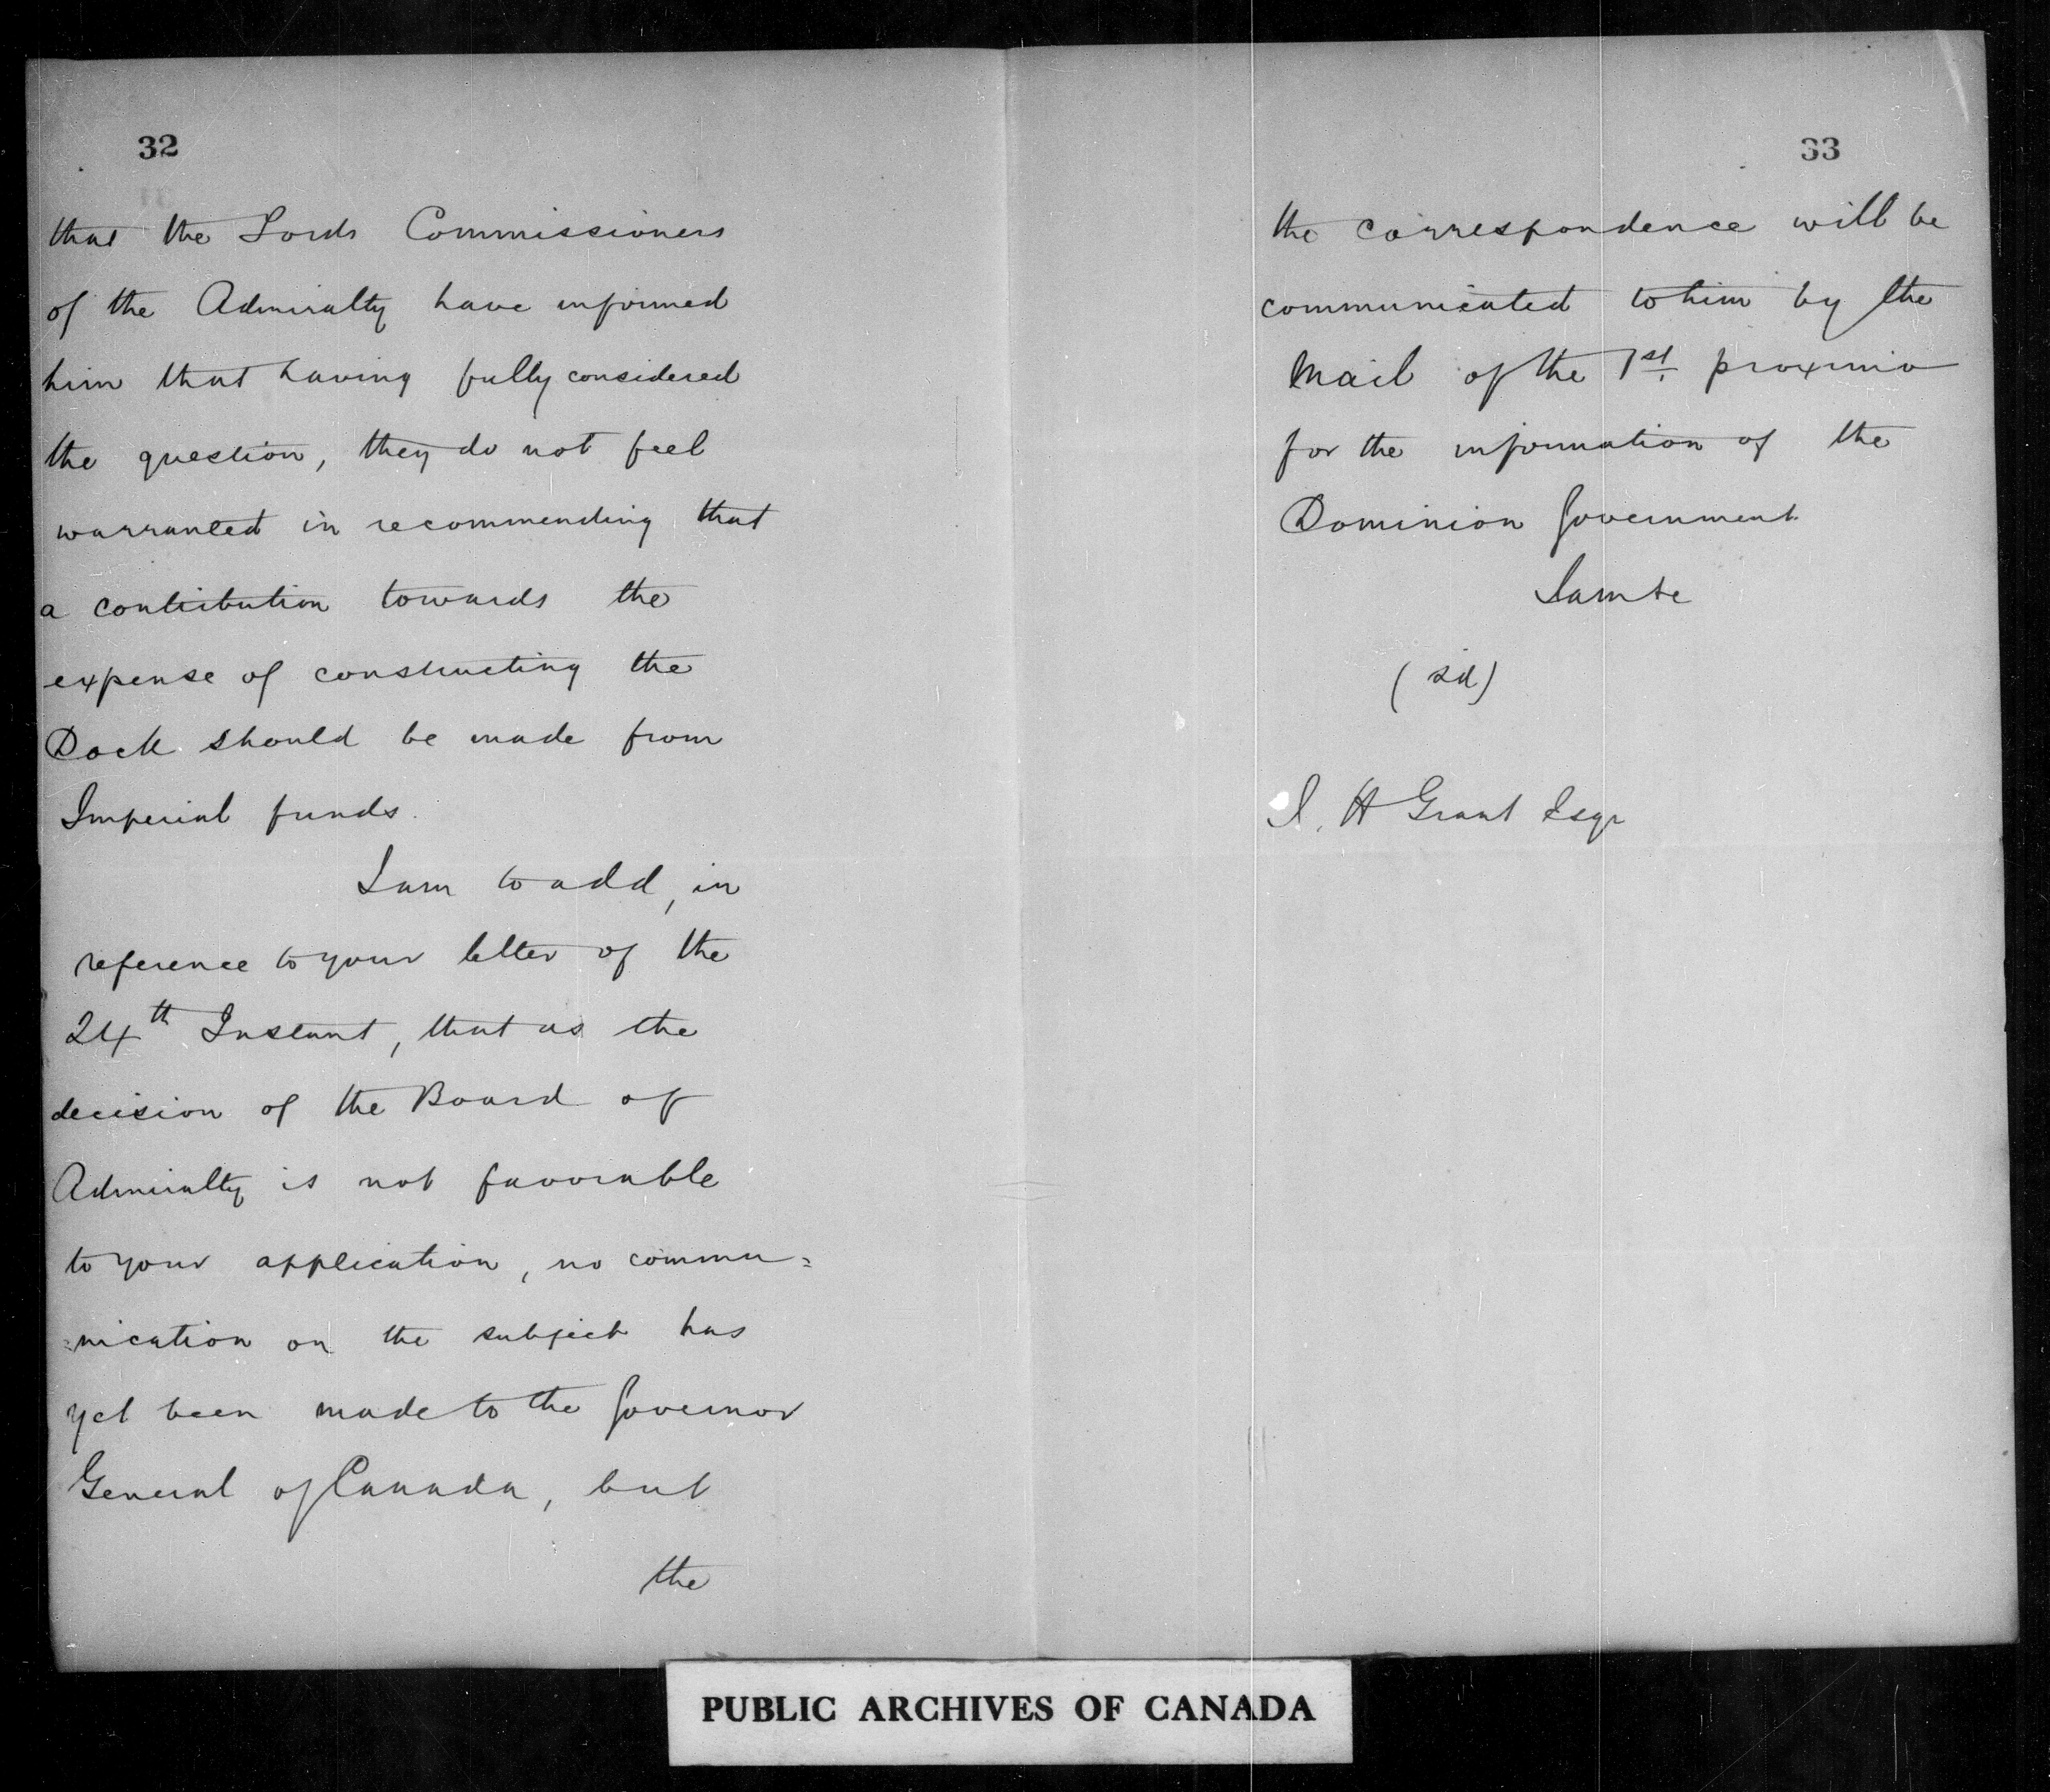 32
that the Lords Commissioners
of the Admiralty have informed
him that having fully considered
the question, they do not feel
warranted in recommending that
a contribution towards the
expense of constructing the
Dock should be made from
Imperial funds.
I am to add, in
reference to your letter of the
24th Instant, that as the
decision of the Board of
Admiralty is not favorable
to your application, no commu=
=nication on the subject has
yet been made to the Governor
General of Canada, but
the
33
the correspondence will be
communicated to him by the
Mail of the 1st. proximo
for the information of the
Dominion Government
I am &c
(sd)
H Grant Esqr
PUBLIC ARCHIVES OF CANADA